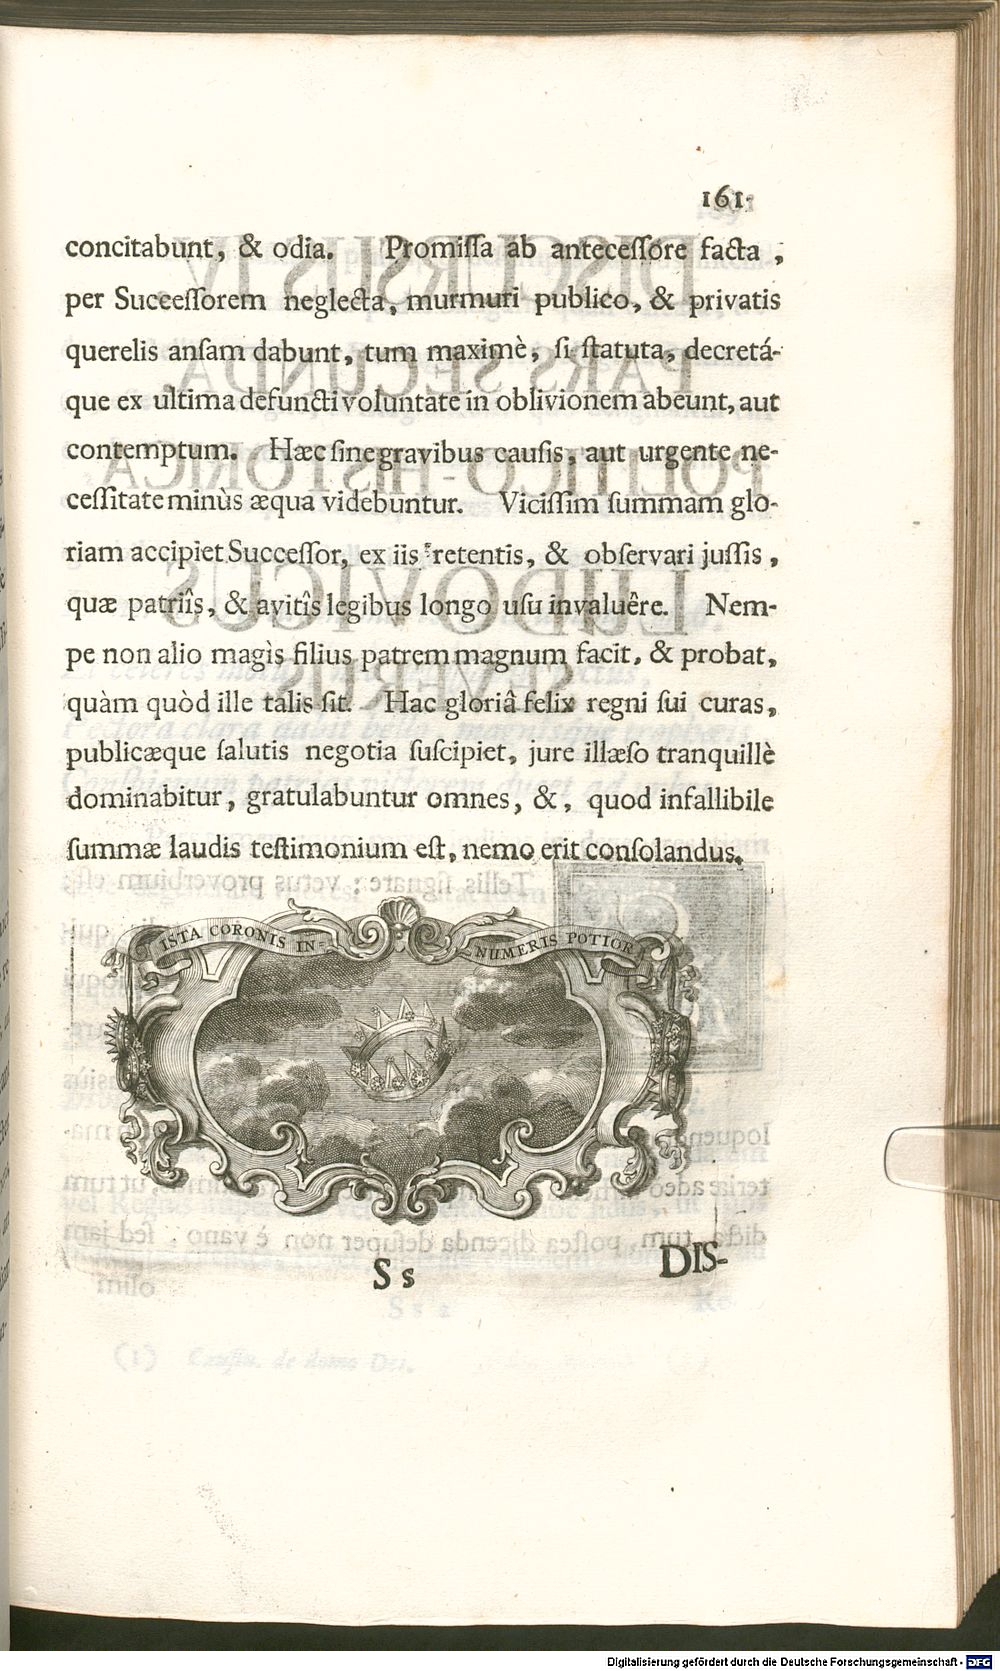 161.
concitabunt, & odia. Promiſſa ab anteceſſore facta,
per Succeſſorem neglecta, murmuri publico, & privatis
querelis anſam dabunt, tum maximè, ſi ſtatuta, decretá-
que ex ultima defuncti voluntate in oblivionem abeunt, aut
contemptum. Hæc ſine gravibus cauſis, aut urgente ne-
ceſſitate minùs æqua videbuntur. Viciſſim ſummam glo-
riam accipiet Succeſſor, ex iis retentis, & obſervari juſſis,
quæ patriîs, & avitîs legibus longo uſu invaluêre. Nem-
pe non alio magìs filius patrem magnum facit, & probat,
quàm quòd ille talis ſit. Hac gloriâ felix regni ſui curas,
publicæque ſalutis negotia ſuſcipiet, jure illæſo tranquillè
dominabitur, gratulabuntur omnes, &, quod infallibile
ſummæ laudis teſtimonium eſt, nemo erit conſolandus.
ISTA CORONIS IN-
NUMERIS POTIOR
S s
DIS-
Digitalisierung gefördert durch die Deutsche Forschungsgemeinschaft - DFG